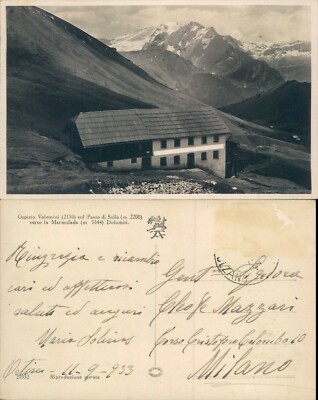 Ospizio Valentini (2150) sul Passo di Sella (m. 2200)
verso la Marmolada (m 3344) Dolomiti.
Ringrazia e ricambia
cari ed affettuosi
saluti ed auguri
Maria
Ortisei - 11 - 9 - 933
25332 Riproduzione vietata
Gent. Signora
Cleofe Mazzari
Corso Cristoforo Colombo 10
Milano